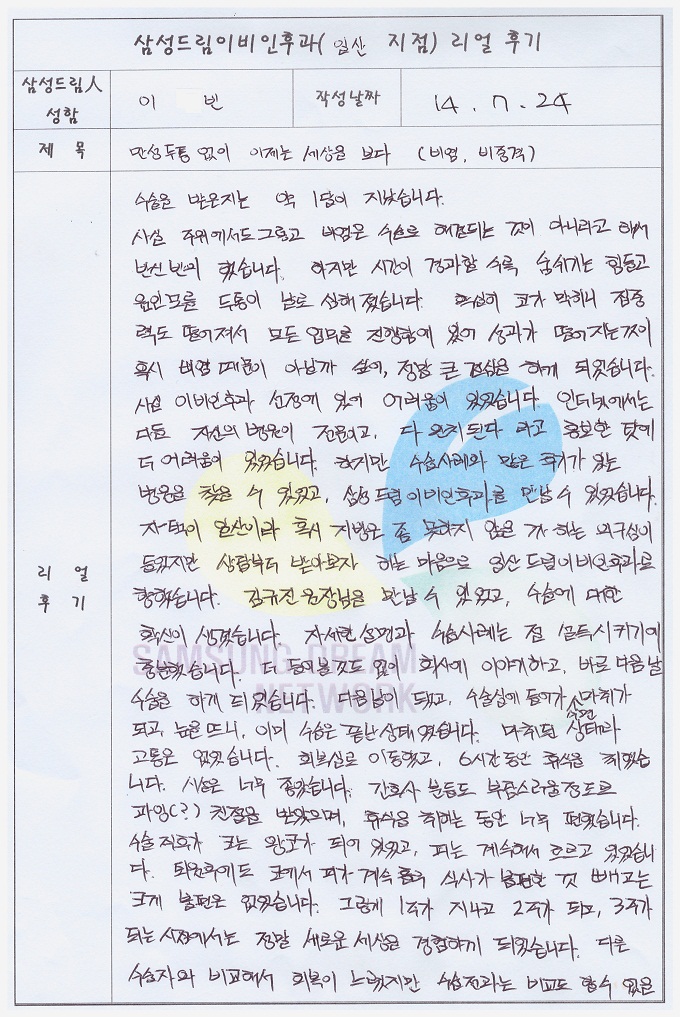 삼성드림이비인후과( 일산 지점) 리얼 후기
삼성드림人 성함
이 빈
작성날짜
14. 7. 24
제 목
만성두통 없이 이제는 세상을 보다 (비염, 비중격)
리 얼 후 기
수술을 받은지는 약 1달이 지났습니다.
사실 주위에서도 그렇고 비염은 수술로 해결되는 것이 아니라고 해서
반신반의 했습니다. 하지만 시간이 경과할 수록 숨쉬기는 힘들고
원인모를 두통이 날로 심해졌습니다. 특성히 코가 막히니 집중
력도 떨어져서 모든 업무를 진행함에 있어 성과가 떨어지는것이
혹시 비염 때문이 아닐까 싶어, 정말 큰 결심을 하게 되었습니다.
사실 이비인후과 선정에 있어 어려움이 있었습니다. 인터넷에서는
다들 자신의 병원이 전문이고, 다 완치된다 라고 홍보한 탓에
더 어려움이 있었습니다. 하지만 수술사례와 많은 후기가 있는
병원을 찾을 수 있었고, 삼성드림이비인후과를 만날 수 있었습니다.
자택이 일산이라 혹시 지방은 좀 못하지 않을까 하는 의구심이
들었지만 상담부터 받아보자 하는 마음으로 일산 드림이비인후과로
향했습니다. 김규진 원장님을 만날 수 있었고, 수술에 대한
확신이 생겼습니다. 자세한 설명과 수술사례는 절 설득시키기에
충분했습니다. 더 들어볼것도 없이 회사에 이야기하고, 바로 다음날
수술을 하게 되었습니다. 다음날이 되었고, 수술실에 들어가 수면마취가
되고, 눈을 뜨니, 이미 수술은 끝난상태였습니다. 마취된 상태라
고통은 없었습니다. 회복실로 이동했고, 6시간동안 휴식을 취했습
니다. 시설은 너무 좋았습니다. 간호사 분들도 부담스러울정도로
과잉(?) 친절을 받았으며, 휴식을 취하는 동안 너무 편했습니다.
수술직후가 코는 왕코가 되어 있었고, 피는 계속해서 흐르고 있었습니
다. 퇴원후에도 코에서 피가 계속 흘러 식사가 불편한 것 빼고는
크게 불편은 없었습니다. 그렇게 1주가 지나고 2주가 되고, 3주가
되는 시점에서는 정말 새로운 세상을 경험하게 되었습니다. 다른
수술자와 비교해서 회복이 느렸지만 수술전과는 비교도 할수 없을
SAMSUNG DREAM
NETWORK